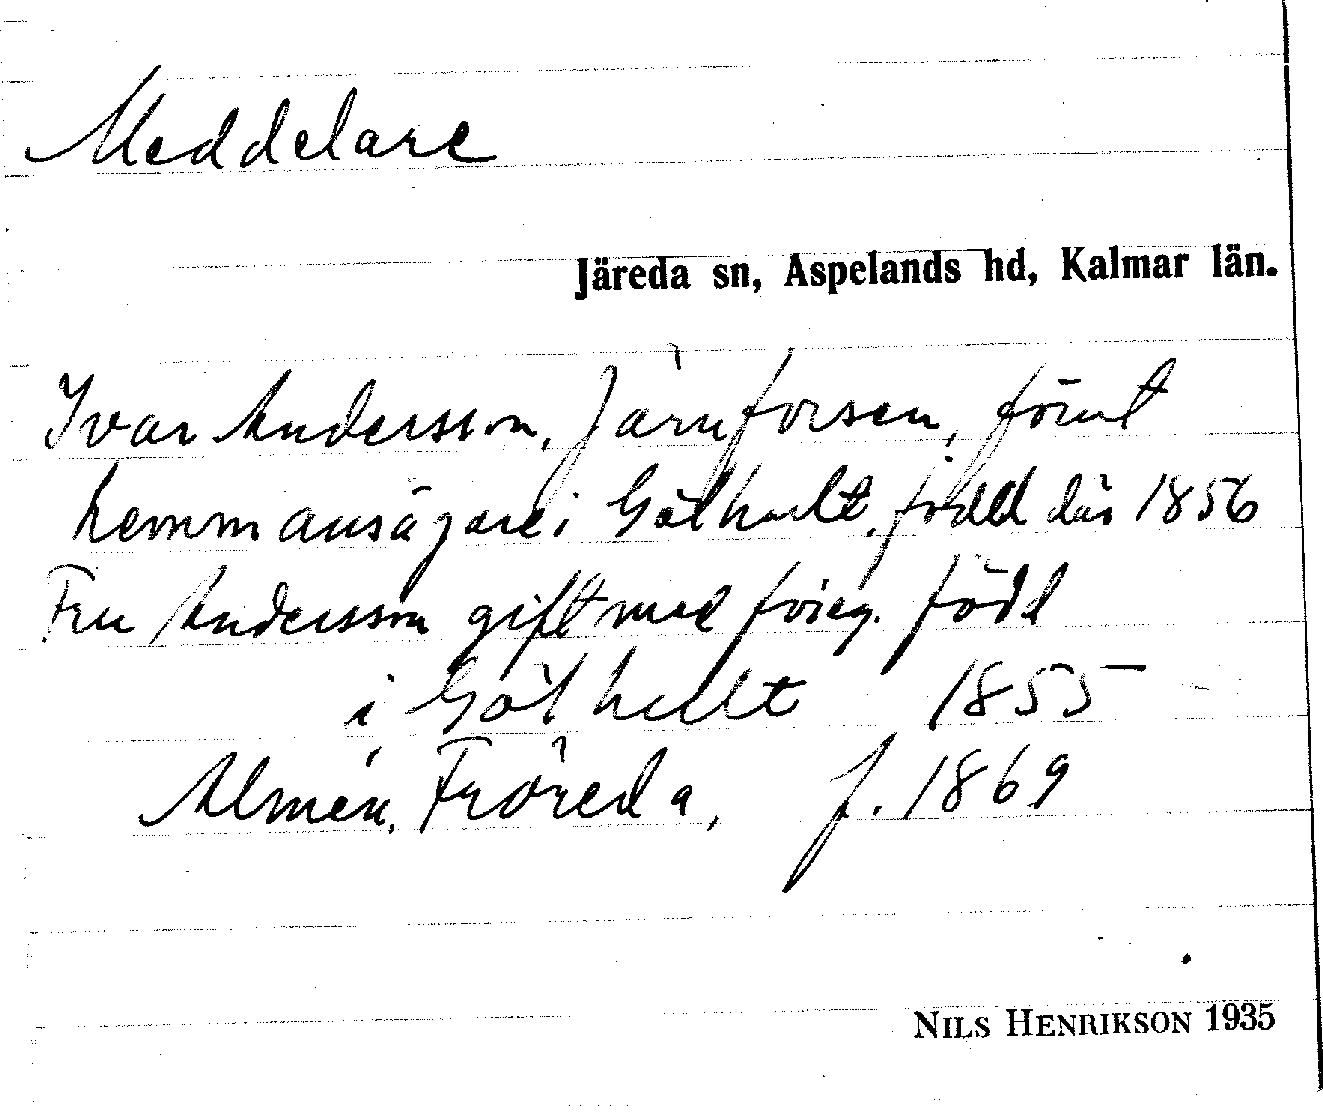 Meddelare
Järeda sn, Aspelands hd, Kalmar län.
Ivar Andersson, Järnforsen, förut
hemmansägare i Gölhult, född där 1856
Fru Andersson gift med föreg. född
i Gölhult 1855
Almén, Fröreda, f. 1869
NILS HENRIKSON 1935